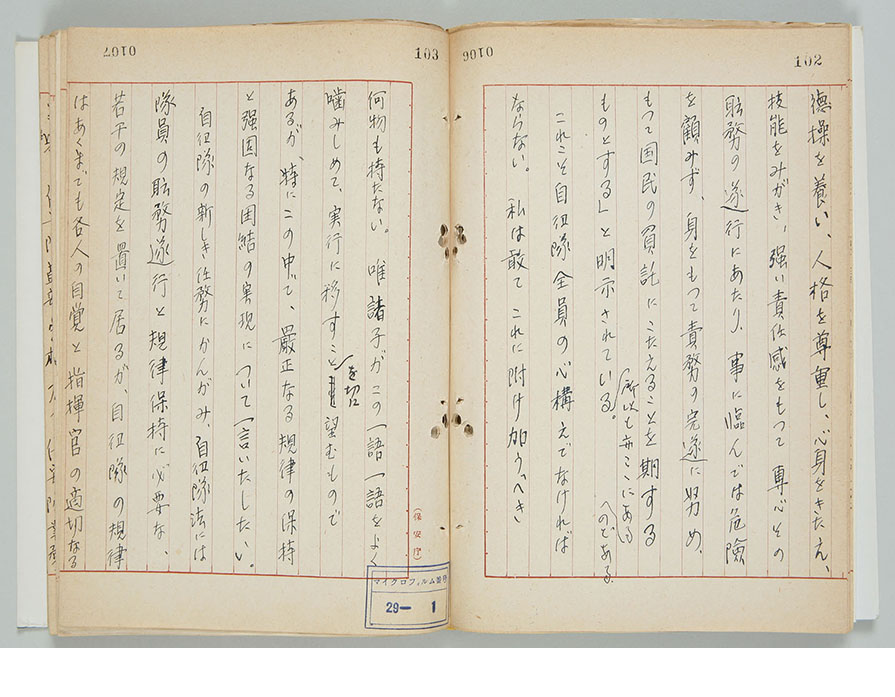 102
0106
徳操を養い、人格を尊重し、心身をきたえ、
技能をみがき、強い責任感をもつて専心その
職務の遂行にあたり、事に臨んでは危険
を顧みず、身をもつて責務の完遂に努め、
もつて国民の負託にこたえることを期する
ものとする」と明示されている。
所以も亦ここにある
のである。
これこそ自衛隊全員の心構えでなければ
ならない。私は敢てこれに附け加うべき
103
0107
何物も持たない。唯諸子がこの一語一語をよく
噛みしめて、実行に移すこと
を切
望むもので
あるが、特にこの中で、厳正なる規律の保持
と強固なる団結の実現について一言いたしたい。
自衛隊の新しき任務にかんがみ、自衛隊法には
隊員の職務遂行と規律保持に必要な、
若干の規定を置いて居るが、自衛隊の規律
はあくまでも各人の自覚と指揮官の適切なる
(保安庁)
マイクロフィルム番号
29— 1